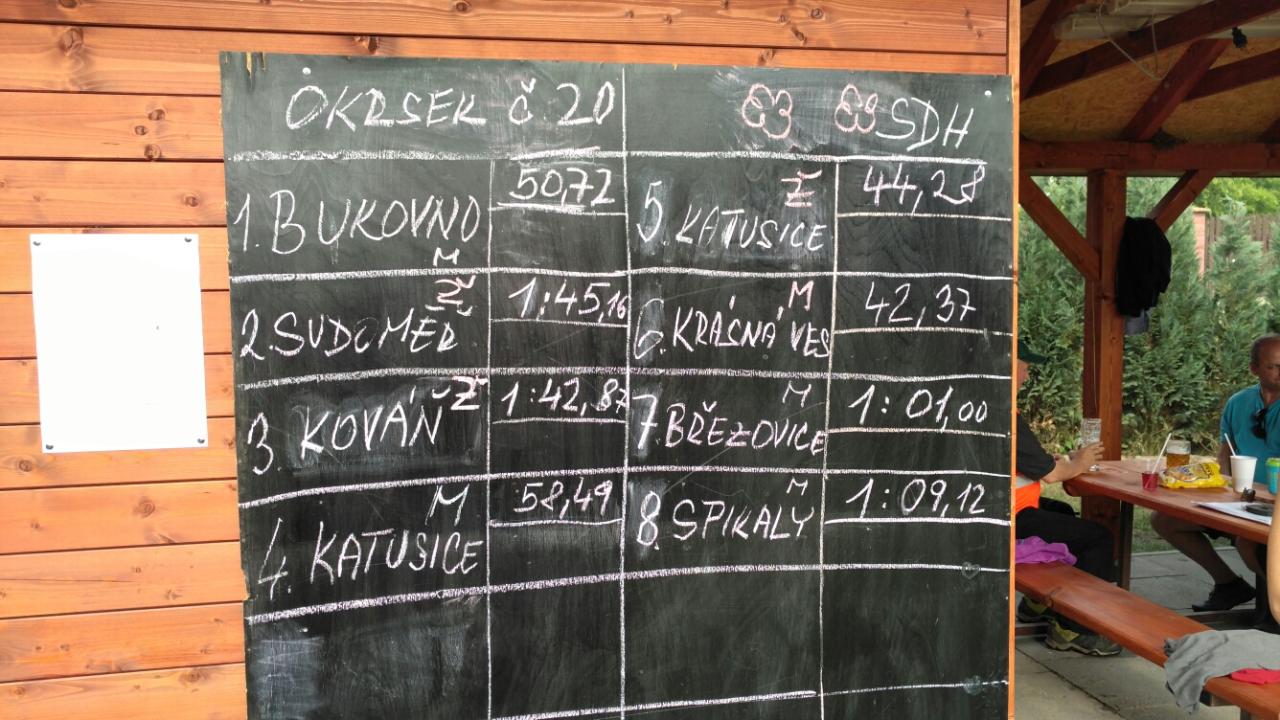 OKRSEK č. 20
SDH
1. BUKOVNO M 50,72
2. SUDOMĚR Ž 1:45,16
3. KOVÁŇ Ž 1:42,87
4. KATUSICE M 58,49
5. KATUSICE Ž 44,28
6. KRÁSNÁ VES M 42,37
7. BŘEZOVICE M 1:01,00
8. SPIKALY M 1:09,12